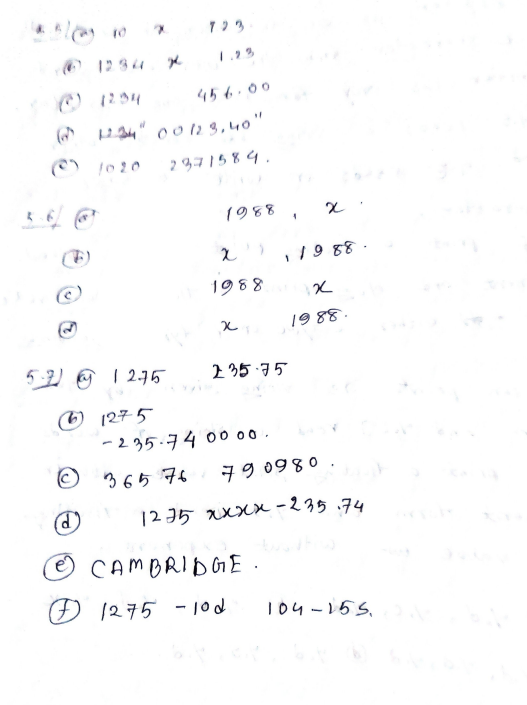 5.5/ (a) 10 x 723.
(b) 1234 x 1.23
(c) 1234 456.00
(d) 1234" 00123.40"
(e) 1020 2371584.
5.6/ (a) 1988, x.
(b) x , 1988.
(c) 1988 x
(d) x 1988.
5.7/ (a) 1275 235.75
(b) 1275
-235.740000.
(c) 36576 790980.
(d) 1275 xxxx-235.74
(e) CAMBRIDGE.
(f) 1275 -10d 104-15S.